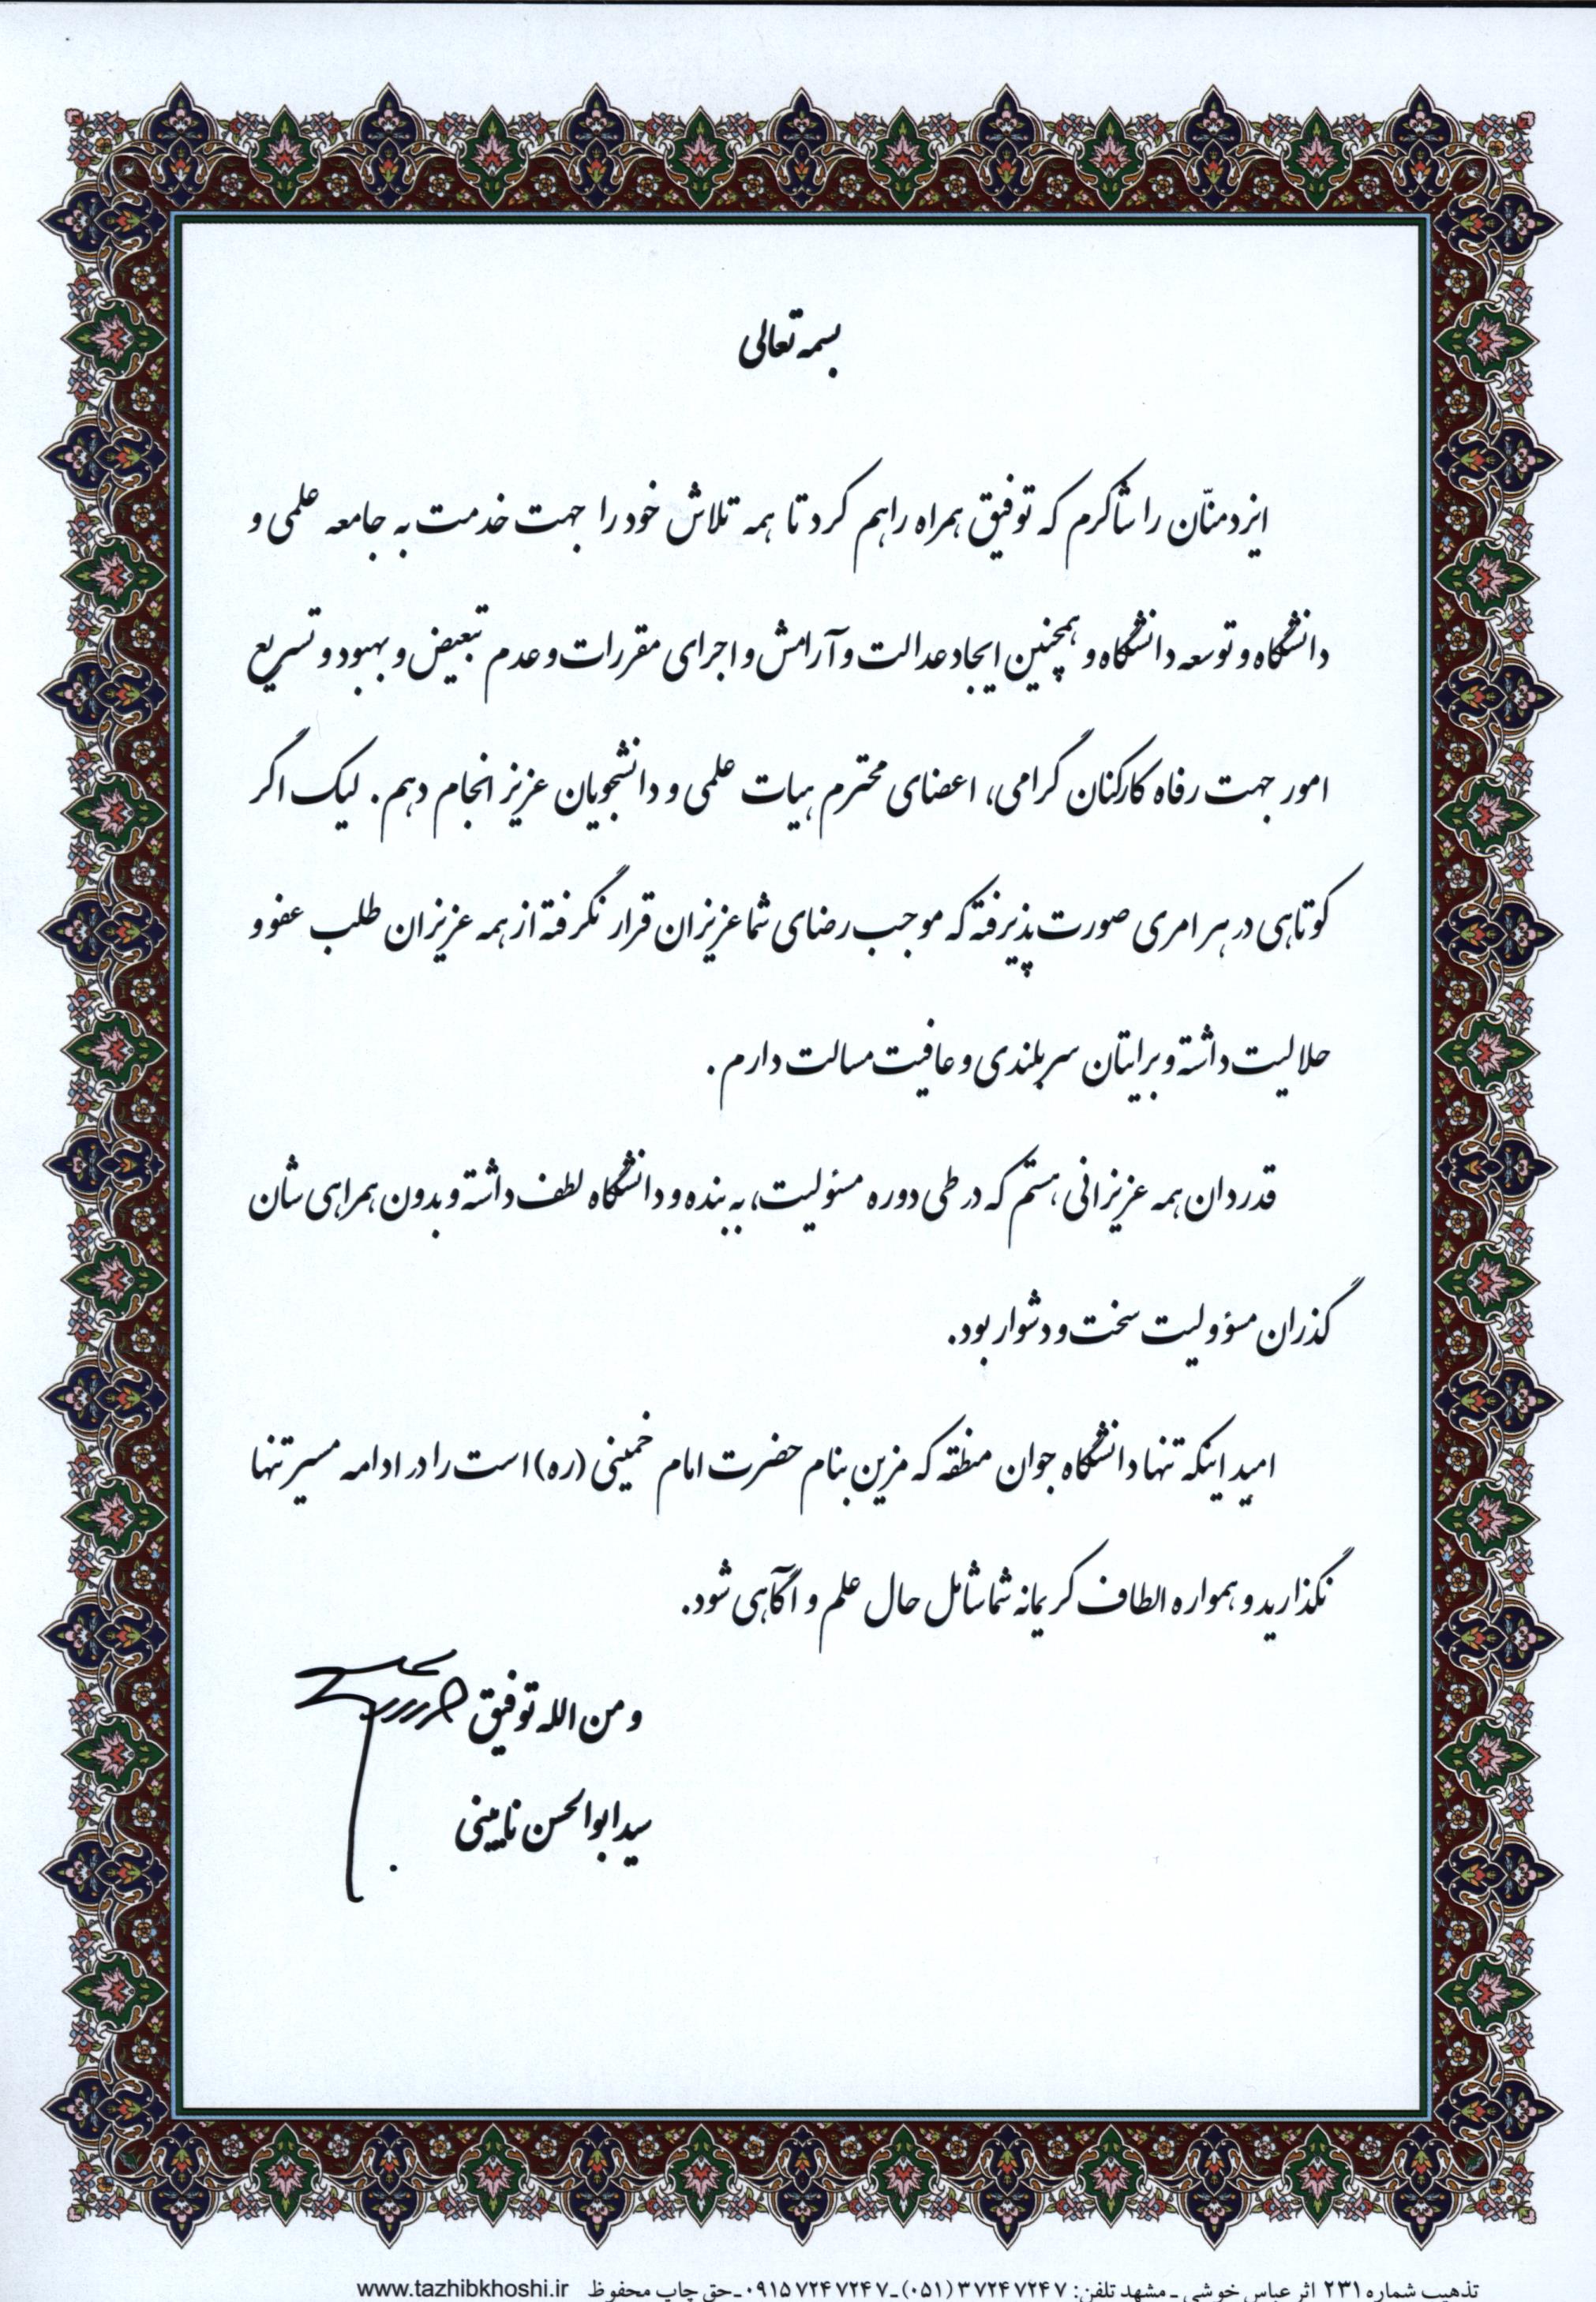 بسمه تعالی
ایزد منّان را شاکرم که توفیق همراه راهم کرد تا همه تلاش خود را جهت خدمت به جامعه علمی و
دانشگاه و توسعه دانشگاه و همچنین ایجاد عدالت و آرامش و اجرای مقررات و عدم تبعیض و بهبود و تسریع
امور جهت رفاه کارکنان گرامی، اعضای محترم هیات علمی و دانشجویان عزیز انجام دهم. لیک اگر
کوتاهی در هر امری صورت پذیرفته که موجب رضای شما عزیزان قرار نگرفته از همه عزیزان طلب عفو و
حلالیت داشته و برایتان سربلندی و عافیت مسالت دارم.
قدردان همه عزیزانی هستم که در طی دوره مسئولیت، به بنده و دانشگاه لطف داشته و بدون همراهی شان
گذران مسؤولیت سخت و دشوار بود.
امید اینکه تنها دانشگاه جوان منطقه که مزین بنام حضرت امام خمینی (ره) است را در ادامه مسیر تنها
نگذارید و همواره الطاف کریمانه شما شامل حال علم و آگاهی شود.
و من الله توفیق
سید ابوالحسن نایینی
تذهیب شماره ۲۳۱ اثر عباس خوشی ـ مشهد تلفن: ۳۷۲۴۷۲۴۷ (۰۵۱) ـ ۰۹۱۵۷۲۴۷۲۴۷ـ حق چاپ محفوظ www.tazhibkhoshi.ir